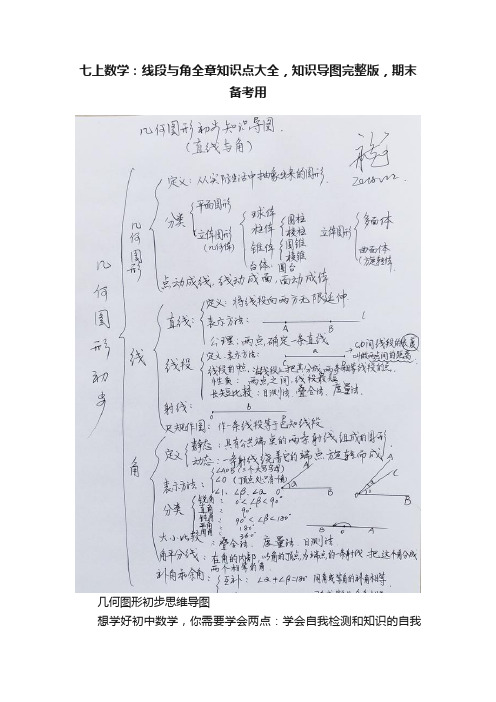 七上数学：线段与角全章知识点大全，知识导图完整版，期末
备考用
几何图形初步知识导图.
(直线与角)
几何图形初步
几何图形
定义：从实际生活中抽象出来的图形.
分类
平面图形
立体图形
(几何体)
球体
柱体
圆柱
棱柱
锥体
圆锥
棱锥
台体：圆台
立体图形
多面体
曲面体
点动成线，线动成面，面动成体
线
直线：
定义：将线段向两方无限延伸
表示方法：
A B l
公理：两点确定一条直线
线段
定义：表示方法：
a
CD间线段的长度
叫做两点间的距离
性质：两点之间，线段最短
长短比较：目测法、叠合法、度量法.
射线：
O B
尺规作图：作一条线段等于已知线段
角
定义
静态：具有公共端点的两条射线组成的图形
动态：一条射线绕着它的端点旋转而成
表示方法：
∠AOB (三个大写字母)
∠O (顶点处只有一个角)
∠1、∠β、∠α
分类
锐角：0<∠β<90°
直角：90°
钝角：90°<∠β<180°
平角：180°
周角：360°
大小比较：叠合法、度量法、目测法
角平分线：在角的内部，以角的顶点为端点的一条射线把这个角分成
两个相等的角.
补角和余角：
互补：∠α+∠β=180° 同角或等角的补角相等.
几何图形初步思维导图
想学好初中数学，你需要学会两点：学会自我检测和知识的自我